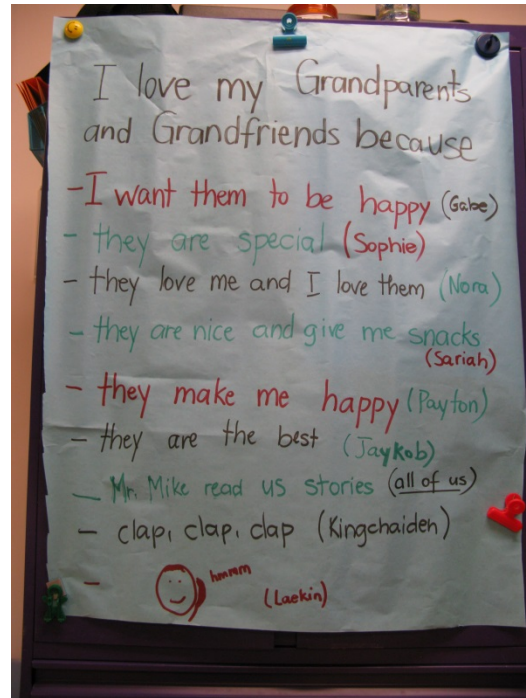 I love my Grandparents
and Grandfriends because
- I want them to be happy (Gabe)
- they are special (Sophie)
- they love me and I love them (Nora)
- they are nice and give me snacks
(Sariah)
- they make me happy (Payton)
- they are the best (Jaykob)
- Mr. Mike read us stories (all of us)
- clap, clap, clap (Kingchaiden)
- hmmm (Laekin)